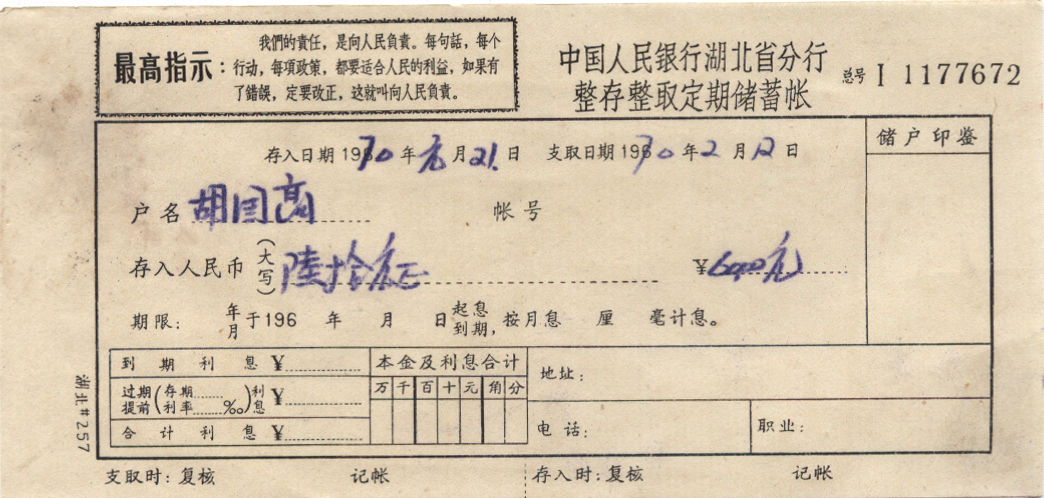 最高指示：
我們的責任，是向人民負責。每句話，每个
行动，每項政策，都要适合人民的利益，如果有
了錯誤，定要改正，这就叫向人民負責。
中国人民银行湖北省分行
整存整取定期储蓄帐
总号 I 1177672
存入日期 1970年元月21日 支取日期 1970年2月12日
储户印鉴
户名 胡国高 帐号
存入人民币（大写）陆拾元正 ¥60.00元
期限： 年月 于196 年 月 日 起息到期，按月息 厘 毫计息。
到期利息 ¥
过期提前（存期利率 ‰）利息 ¥
合计利息 ¥
本金及利息合计
万 千 百 十 元 角 分
地址：
电话：
职业：
湖北#257
支取时：复核 记帐 存入时：复核 记帐